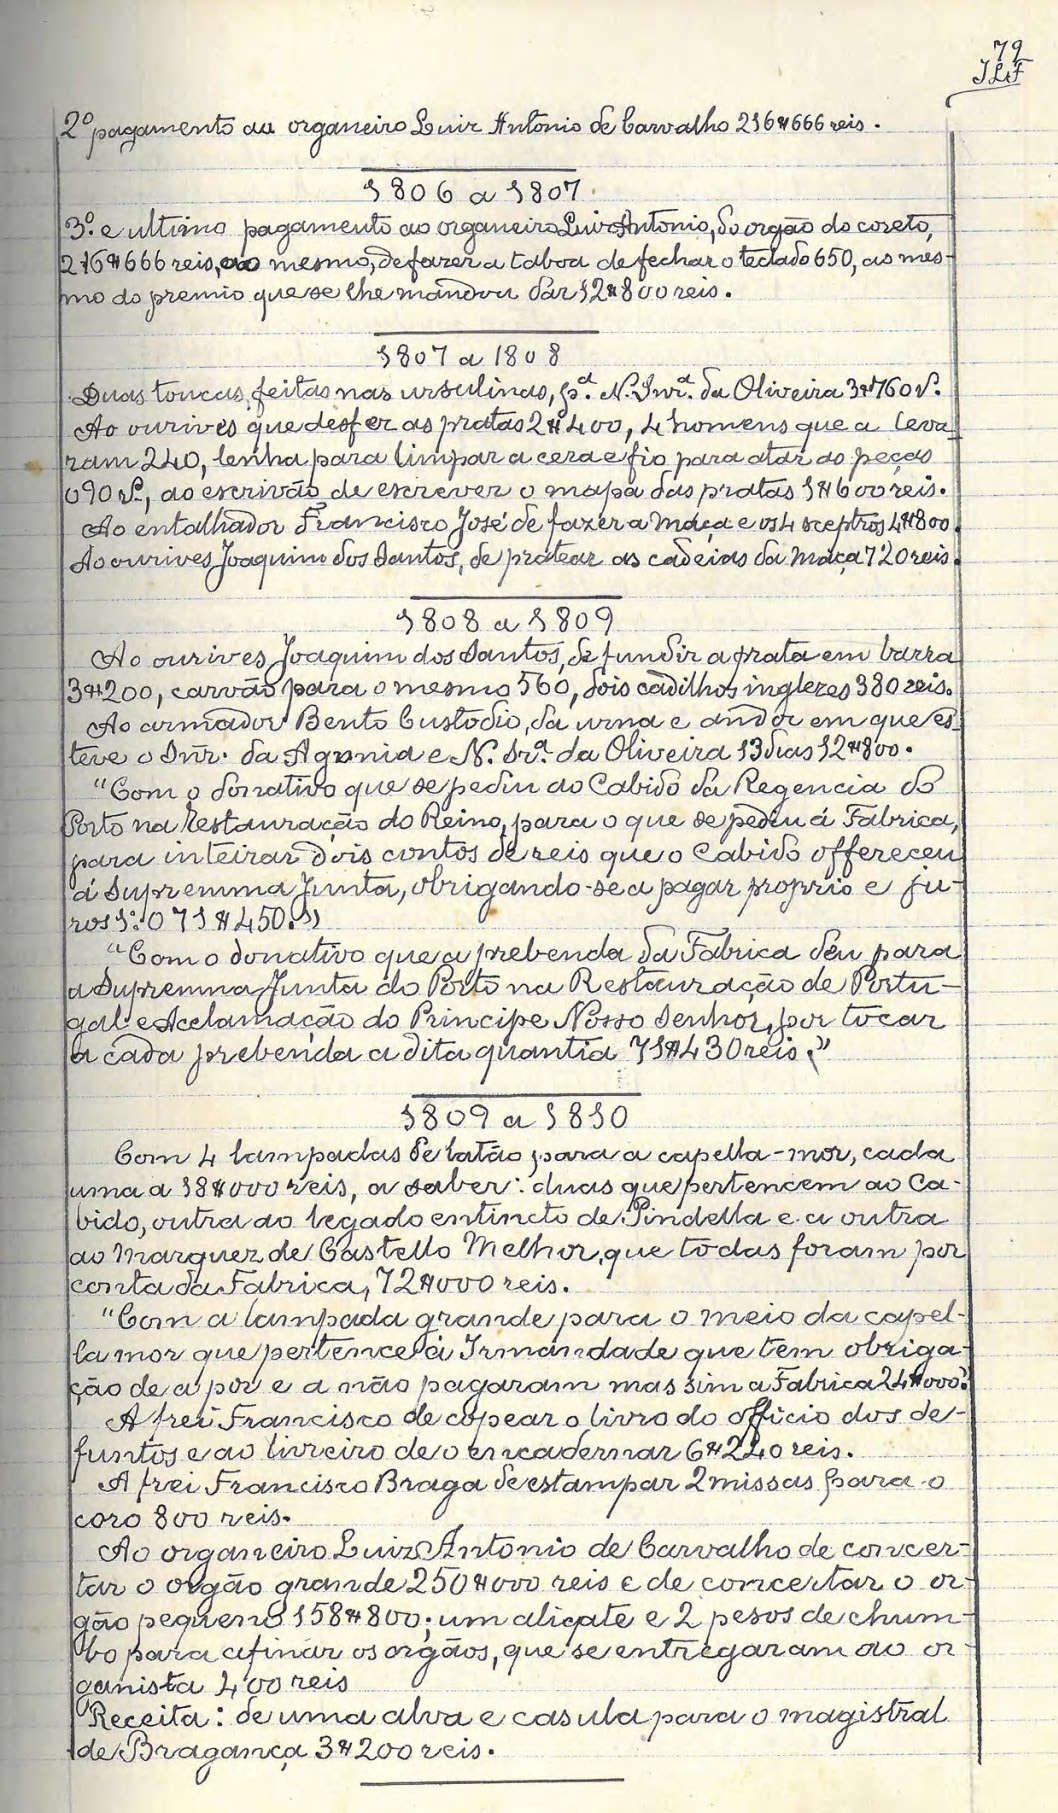 79
JLF
2º pagamento au organeiro Luiz Antonio de Carvalho 216$666 reis.
1806 a 1807
3º e ultimo pagamento ao organeiro Luiz Antonio, do orgão do coreto,
216$666 reis, ao mesmo, de fazer a taboa de fechar o teclado 650, ao mes-
mo do premio que se lhe mandou dar 12$800 reis.
1807 a 1808
Duas toucas, feitas nas ursulinas, pª. N. Snrª. da Oliveira 3$760 rs.
Ao ourives que desfez as pratas 2$400, 4 homens que a leva-
ram 240, lenha para limpar a cera e fio para atar as peças
090 rs., ao escrivão de escrever o mapa das pratas 1$600 reis.
Ao entalhador Francisco José de fazer a maça e os 4 sceptros 4$800.
Ao ourives Joaquim dos Santos, de pratear as cadeias da maça 720 reis.
1808 a 1809
Ao ourives Joaquim dos Santos, de fundir a prata em barra
3$200, carvão para o mesmo 560, dois cadilhos inglezes 380 reis.
Ao armador Bento Custodio, da urna e andor em que es-
teve o Snr. da Agonia e N. Srª. da Oliveira 13 dias 12$800.
"Com o donativo que se pediu ao Cabido da Regencia do
Porto na Restauração do Reino, para o que se pediu á Fabrica,
para inteirar dois contos de reis que o Cabido offereceu
á Supremma Junta, obrigando-se a pagar proprio e ju-
ros 1:071$450."
"Com o donativo que a prebenda da Fabrica deu para
a Supremma Junta do Porto na Restauração de Portu-
gal e Acclamação do Principe Nosso Senhor, por tocar
a cada prebenda a dita quantia 71$430 reis."
1809 a 1810
Com 4 lampadas de latão para a capella-mor, cada
uma a 18$000 reis, a saber: duas que pertencem ao Ca-
bido, outra ao legado entincto de Pindella e a outra
ao Marquez de Castello Melhor, que todas foram por
conta da Fabrica, 72$000 reis.
"Com a lampada grande para o meio da capel-
la mor que pertence á Irmandade que tem obriga-
ção de a por e a não pagaram mas sim a Fabrica 24$000."
A frei Francisco de copear o livro do officio dos de-
funtos e ao livreiro de o encadernar 6$240 reis.
A frei Francisco Braga de estampar 2 missas para o
coro 800 reis.
Ao organeiro Luiz Antonio de Carvalho de concer-
tar o orgão grande 250$000 reis e de concertar o or-
gão pequeno 158$800; um alicate e 2 pesos de chum-
bo para afinar os orgãos, que se entregaram ao or-
ganista 400 reis
Receita: de uma alva e casula para o magistral
de Bragança 3$200 reis.